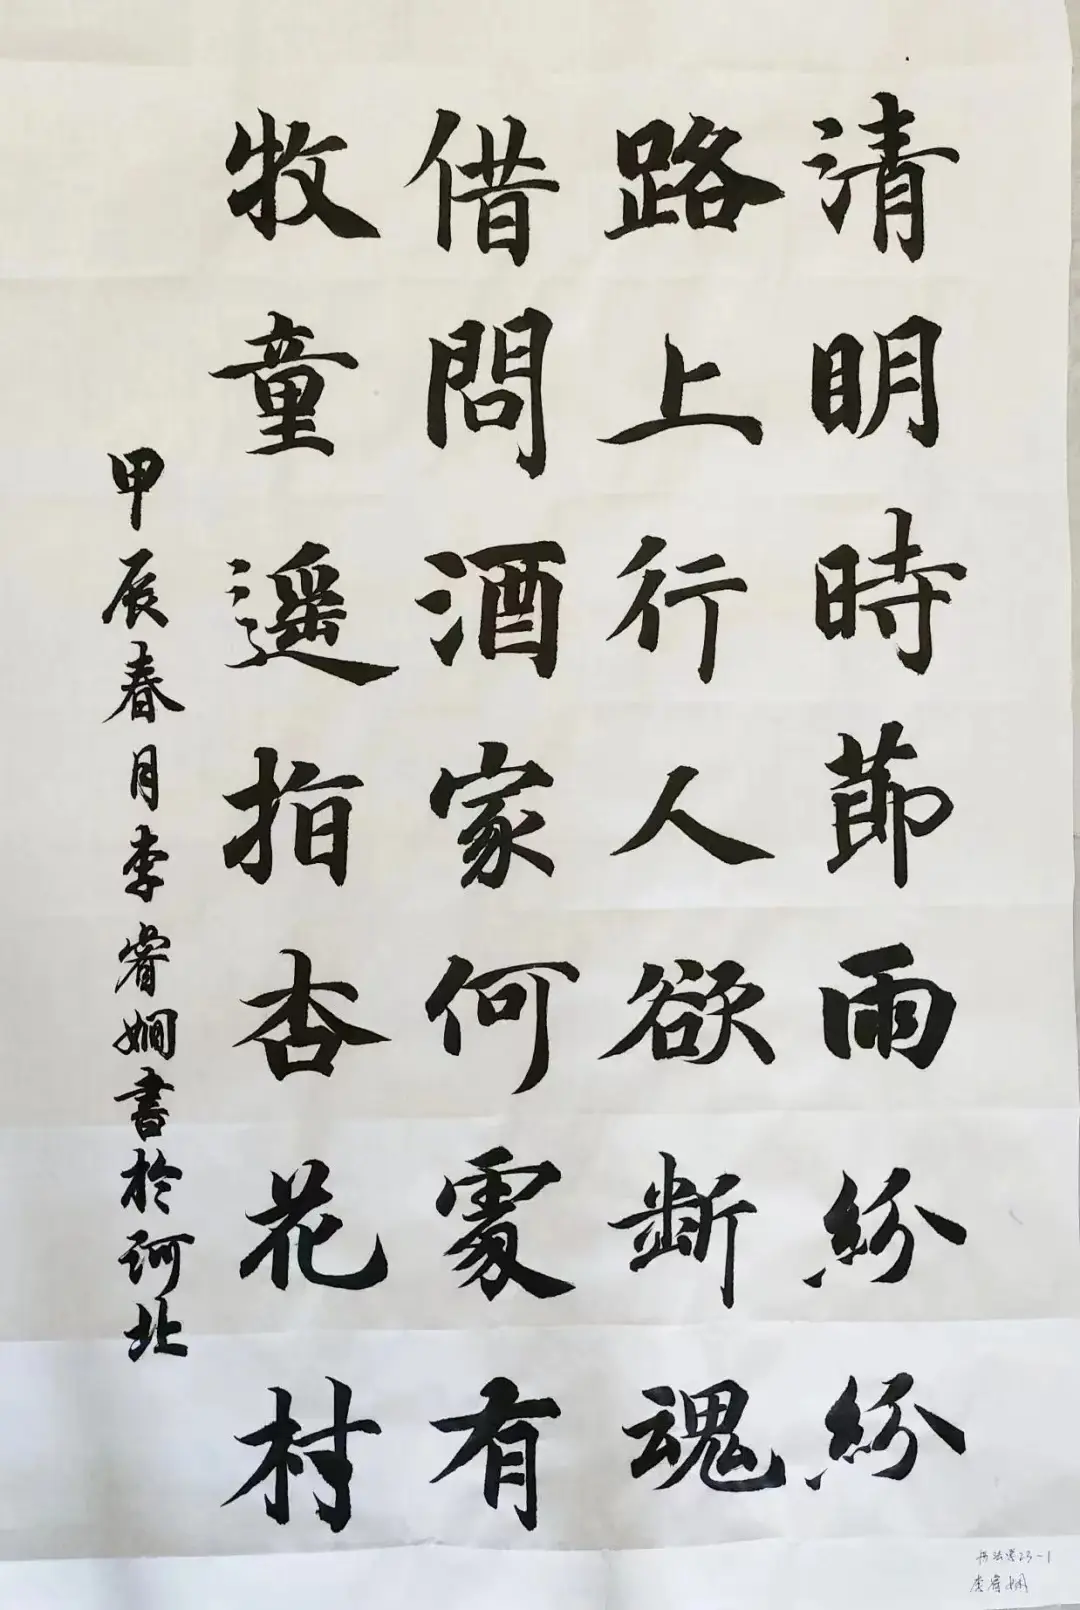 清明時節雨紛紛
路上行人欲斷魂
借問酒家何處有
牧童遥指杏花村
甲辰春月李睿嫻書於河北
书法系23-1
李睿娴